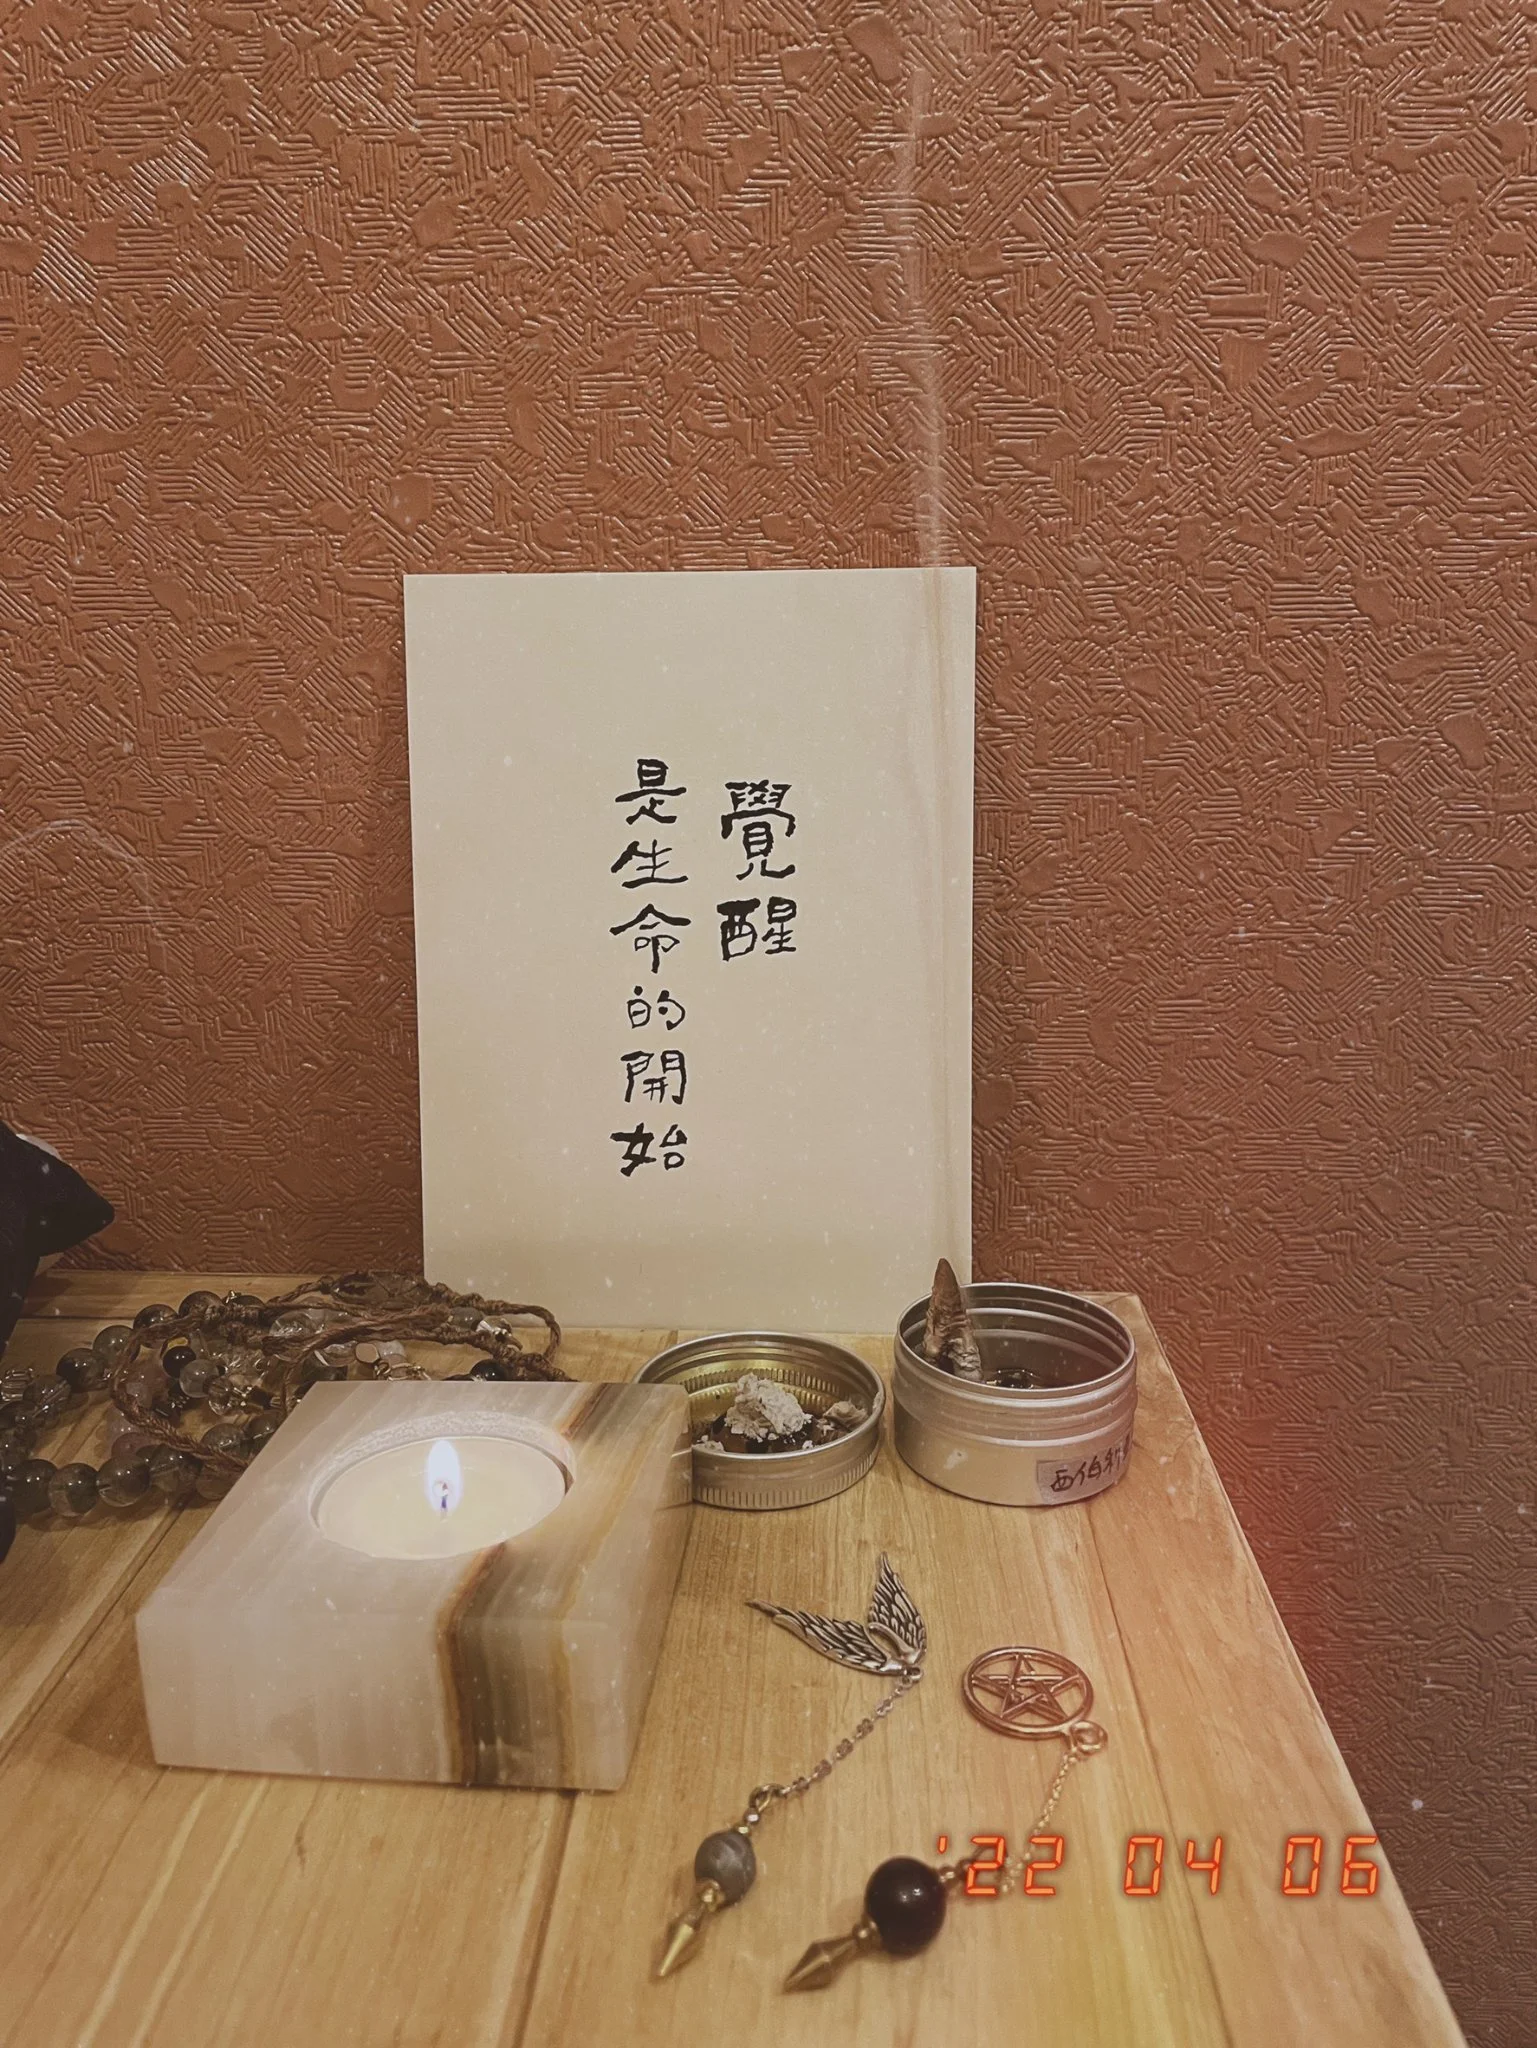 覺醒
是生命的開始
西伯利
'22 04 06